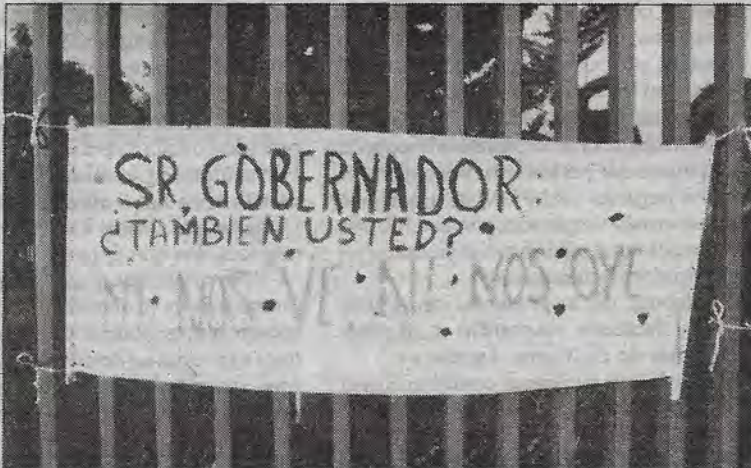 SR. GOBERNADOR:
¿TAMBIEN USTED?
NI NOS VE NI NOS OYE